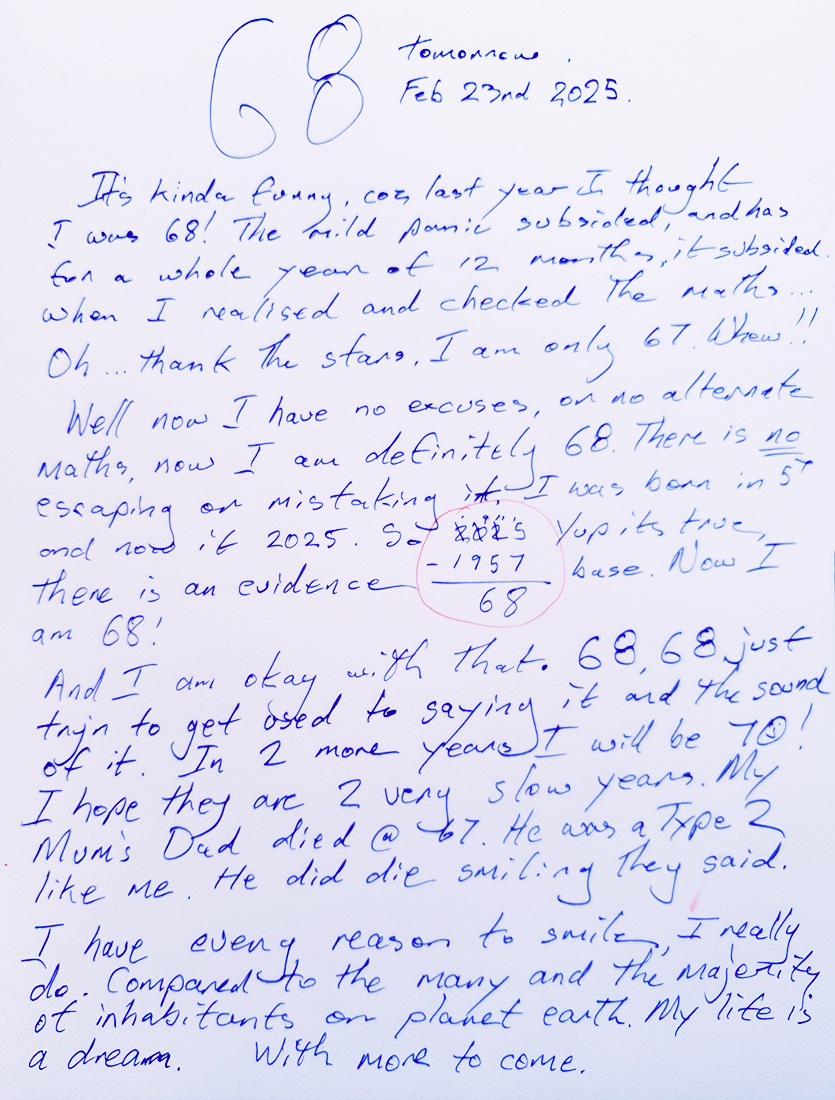 68 tomorrow.
Feb 23rd 2025.
It's kinda funny, coz last year I thought
I was 68! The mild panic subsided, and has
for a whole year of 12 months, it subsided.
when I realised and checked the maths...
Oh... thank the stars, I am only 67. Whew!!
Well now I have no excuses, or no alternate
maths, now I am definitely 68. There is no
escaping or mistaking it. I was born in 57
and now it 2025. So 2025 Yup its true,
there is an evidence - 1957 base. Now I
68
am 68!
And I am okay with that. 68, 68 just
tryin to get used to saying it and the sound
of it. In 2 more years I will be 70!
I hope they are 2 very slow years. My
Mum's Dad died @ 67. He was a Type 2
like me. He did die smiling they said.
I have every reason to smile, I really
do. Compared to the many and the majority
of inhabitants on planet earth. My life is
a dream. With more to come.